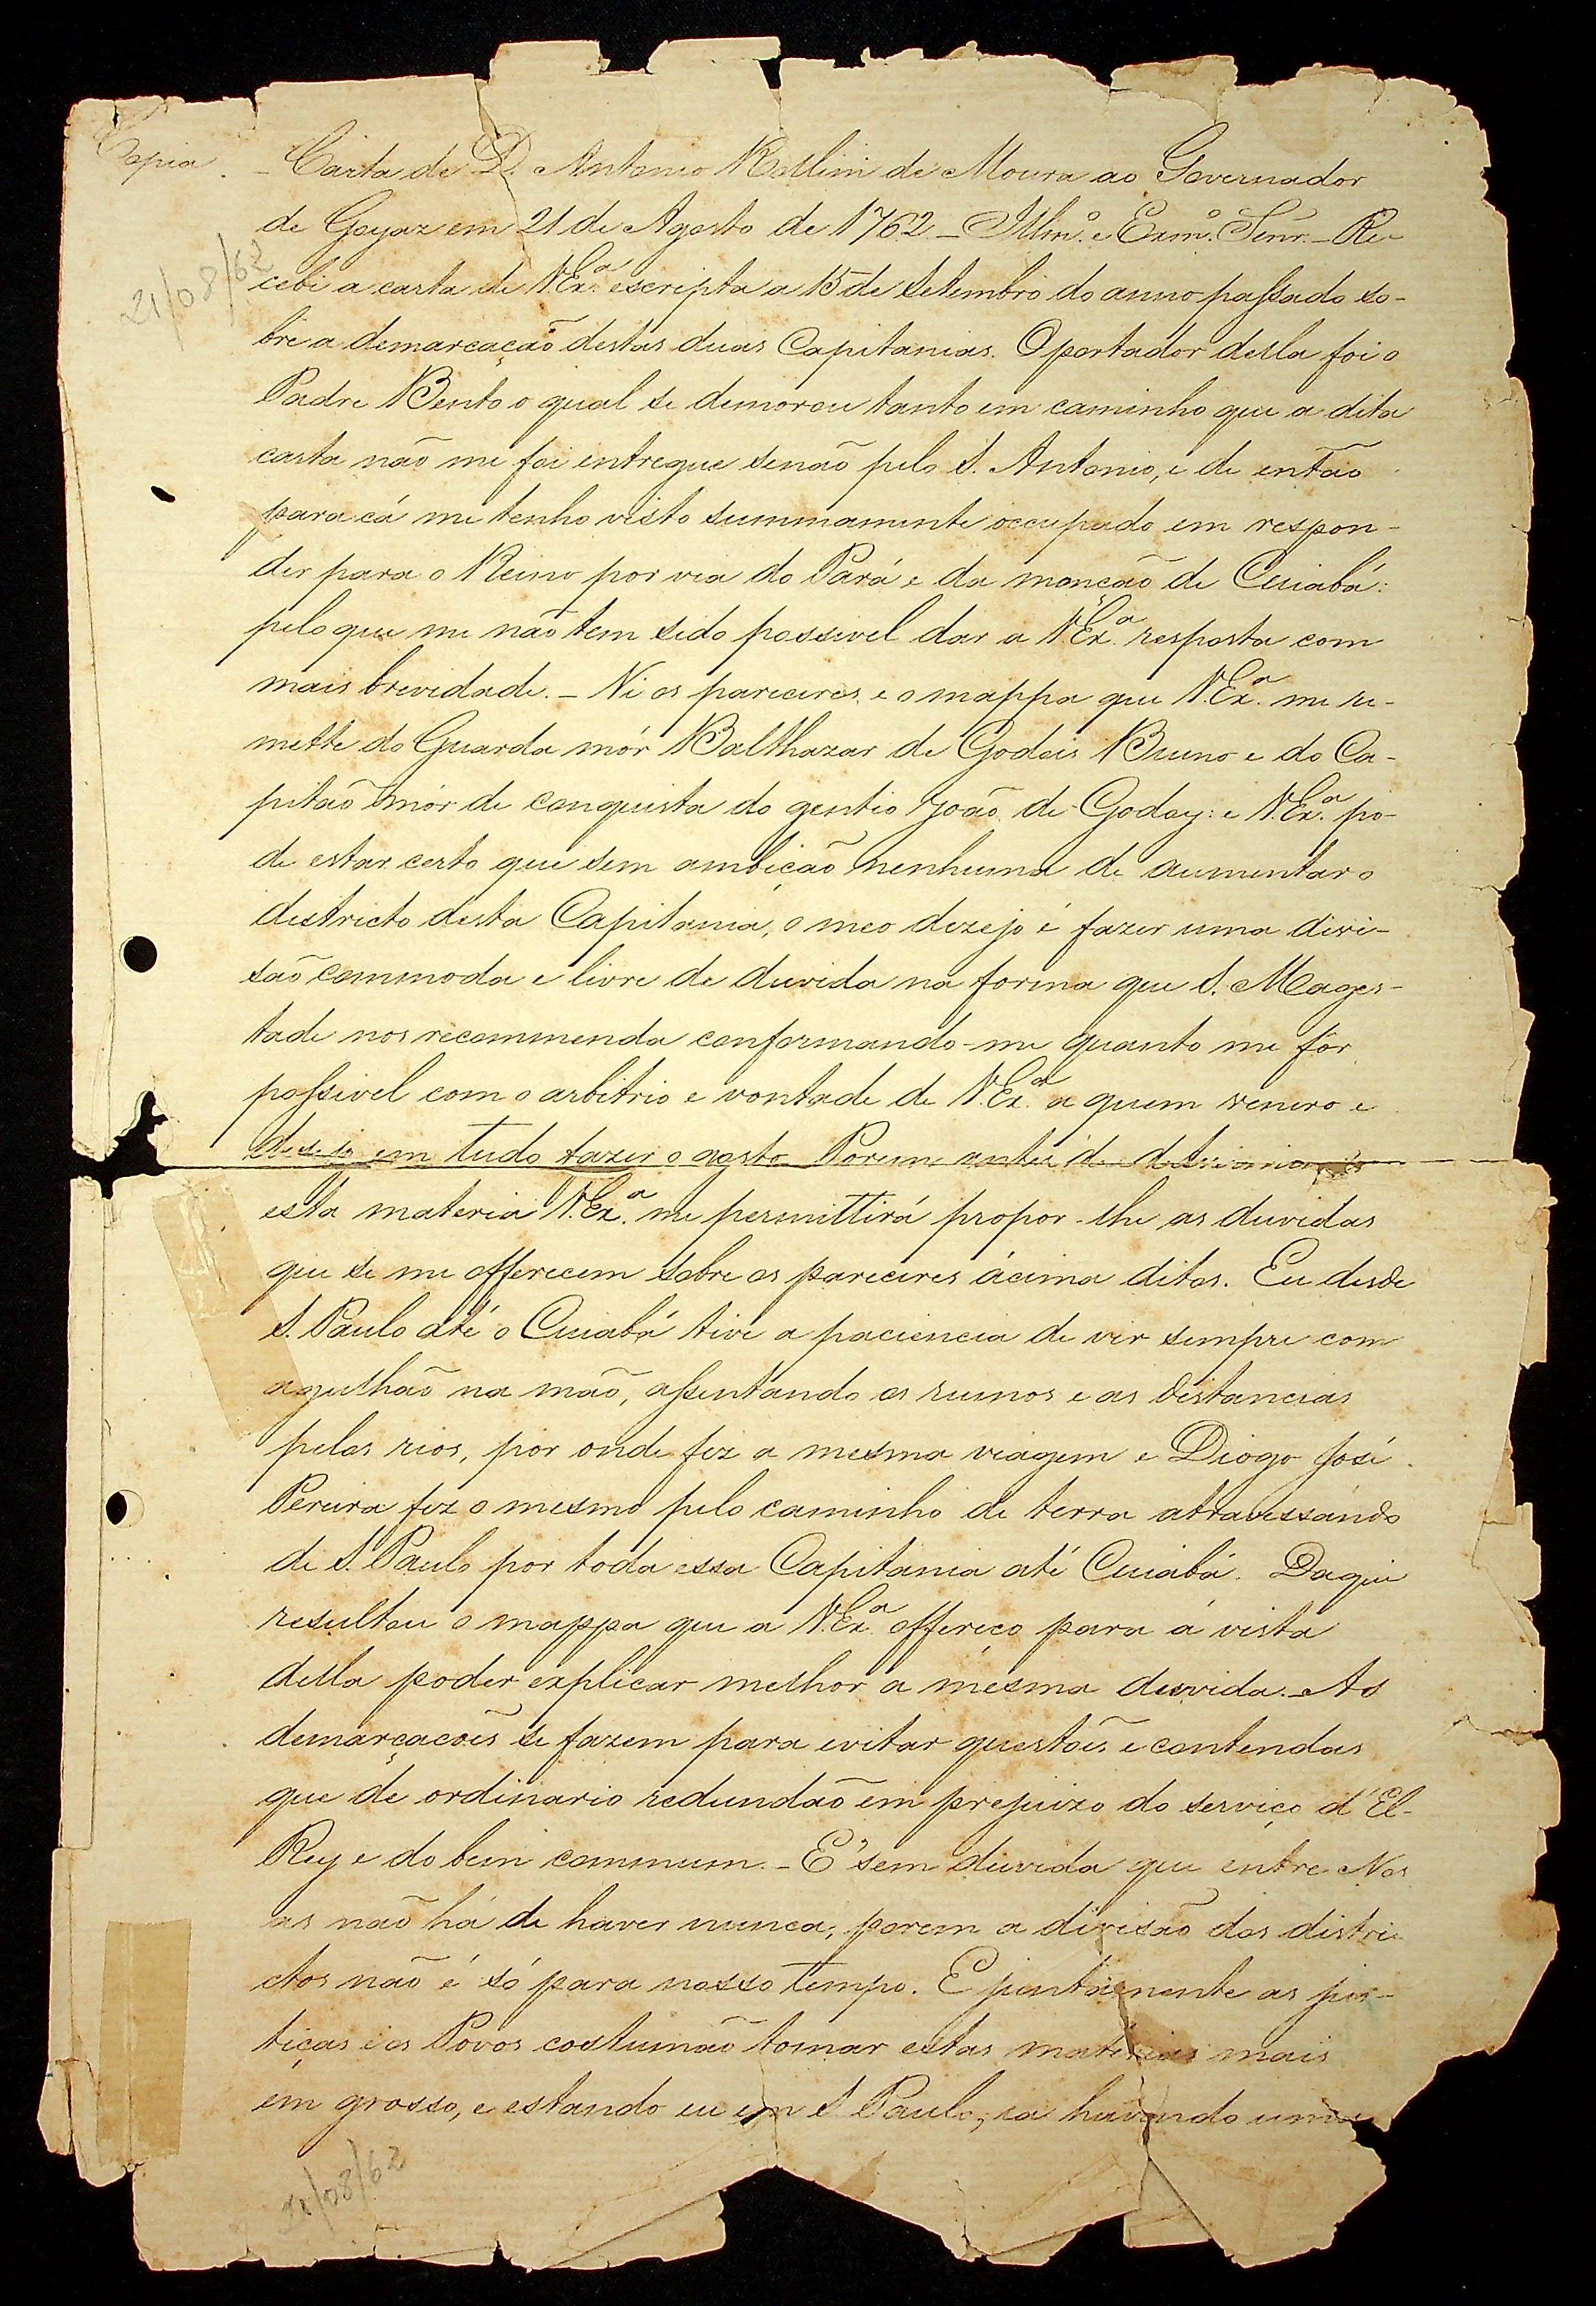 Copia. - Carta de D. Antonio Rollim de Moura ao Governador
de Goyaz em 21 de Agosto de 1762 - Illmº. e Exmº. Senr. - Re-
21/08/62
cebi a carta de V.Exª. escripta a 15 de Setembro do anno passado so-
bre a demarcação destas duas Capitanias. O portador della foi o
Padre Bento o qual se demorou tanto em caminho que a dita
carta não me foi entregue senão pelo S. Antonio, e de então
para cá me tenho visto summamente occupado em respon-
der para o Reino por via do Pará e da monção de Cuiabá:
pelo que me não tem sido possivel dar a V.Exª. resposta com
mais brevidade. - Vi os pareceres, e o mappa que V.Exª. me re-
mette do Guarda mór Balthazar de Godois Bueno e do Ca-
pitão mór de conquista do gentio João de Godoy: e V.Exª. po-
de estar certo que sem ambição nenhuma de aumentar o
districto desta Capitania, o meo dezejo é fazer uma divi-
são commoda e livre de duvida na forma que S. Mages-
tade nos recommenda conformando-me quanto me fôr
possivel com o arbitrio e vontade de V.Exª. a quem venero e
desejo em tudo fazer o gosto. Porem antes de
esta materia V.Exª. me permittirá propor-lhe as duvidas
que se me offerecem sobre os pareceres ácima ditos. Eu desde
S. Paulo até o Cuiabá tive a paciencia de vir sempre com
agulhão na mão, assentando os rumos e as distancias
pelos rios, por onde fiz a mesma viagem e Diogo José
Pereira fez o mesmo pelo caminho de terra atravessando
de S. Paulo por toda essa Capitania até Cuiabá. Daqui
resultou o mappa que a V.Exª. offereço para á vista
della poder explicar melhor a mesma duvida. - As
demarcações se fazem para evitar questões e contendas
que de ordinario redundão em prejuizo do serviço d'El-
Rey e do bem commum. - E' sem duvida que entre Nos
as não há de haver nunca; porem a divisão dos distri-
ctos não é só para nosso tempo. E juntamente as jus-
tiças e os Povos costumão tomar estas materias mais
em grosso, e estando eu em S. Paulo, ia havendo uma
21/08/62